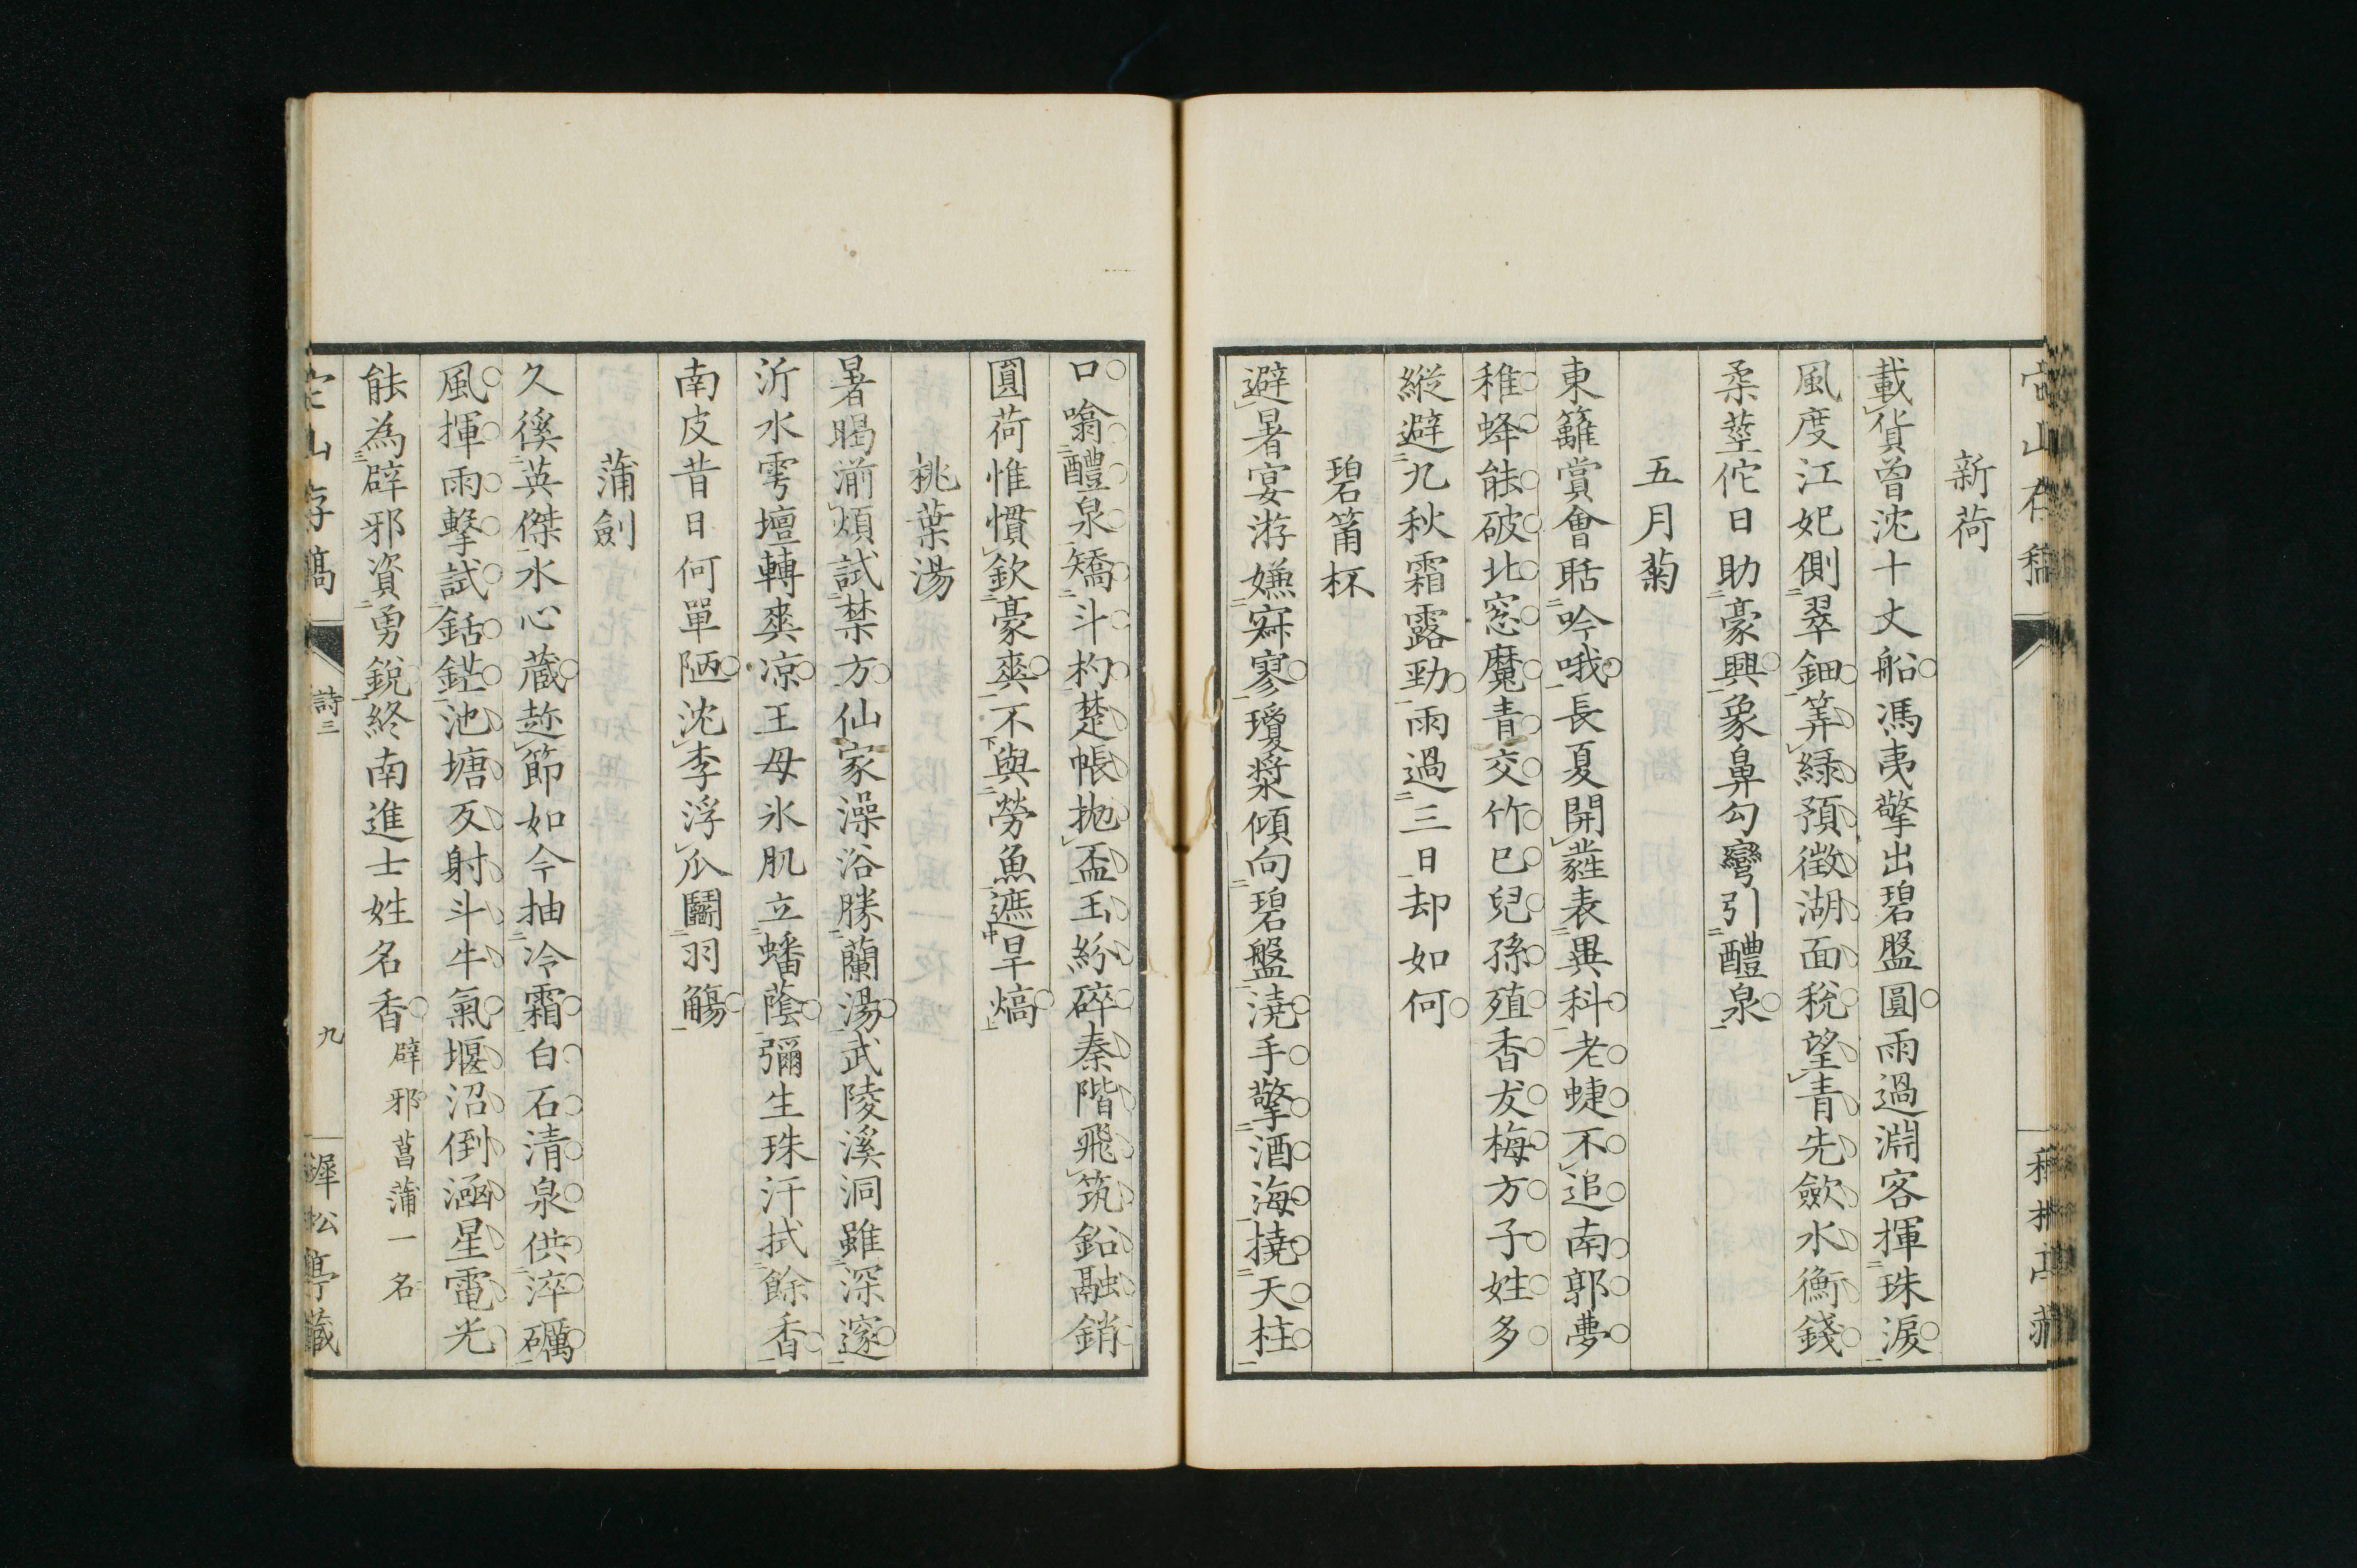 新荷
載貨曾沈十丈船馮夷擎出碧盤圓雨過淵客揮珠淚
風度江妃側翠鈿筭緑預徴湖面稅望青先斂水衡錢
柔莖佗日助豪興象鼻勾彎引醴泉
五月菊
東籬賞會聒吟哦長夏開蕤表異科老蜨不追南郭夢
稚蜂能破北窓魔青交竹巳兒孫殖香友梅方子姓多
縱避九秋霜露勁雨過三日却如何
碧筩杯
避暑宴游嫌寂寥瓊漿傾向碧盤澆手擎酒海撓天柱
口噏醴泉矯斗杓楚帳抛盃玉紛碎秦階飛筑鉛融銷
圓荷惟慣欽豪爽不與勞魚遮旱熇
桃葉湯
暑暍湔煩試禁方仙家澡浴勝蘭湯武陵溪洞雖深邃
沂水雩壇轉爽凉王母氷肌立蟠蔭彌生珠汗拭餘香
南皮昔日何單陋沈李浮瓜鬭羽觴
蒲劍
久徯英傑水心蔵趂節如今抽冷霜白石清泉供淬礪
風揮雨擊試銛鋩池塘仄射斗牛氣堰沼倒涵星電光
能為辟邪資勇銳終南進士姓名香 辟邪菖蒲一名
詩三
九
犀松亭藏